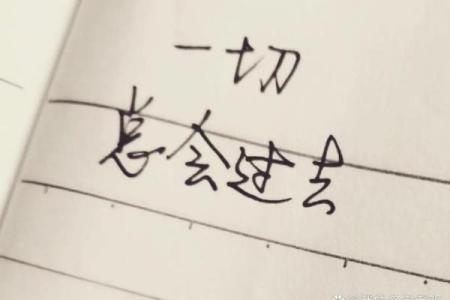 一切
总会过去